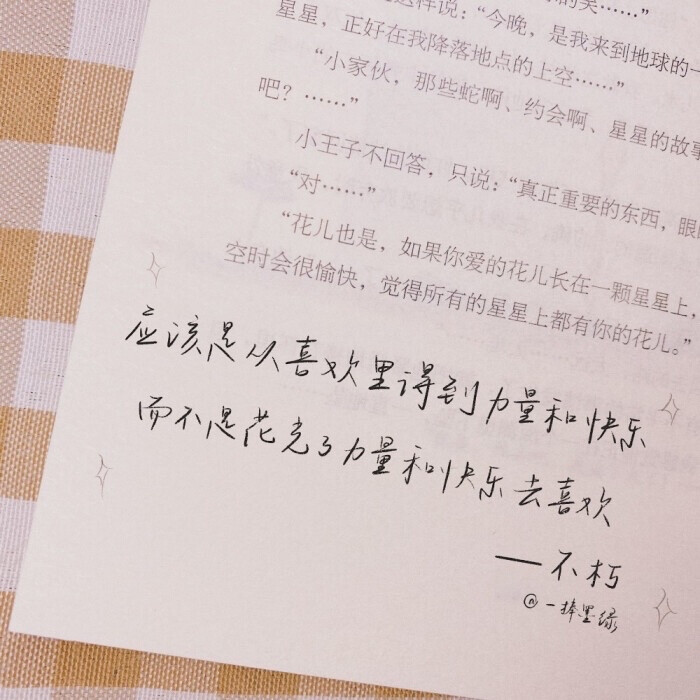 这样说：“今晚，是我来到地球的一
星星，正好在我降落地点的上空……”
“小家伙，那些蛇啊、约会啊、星星的故事
吧？……”
小王子不回答，只说：“真正重要的东西，眼
“对……”
“花儿也是，如果你爱的花儿长在一颗星星上，
空时会很愉快，觉得所有的星星上都有你的花儿。”
应该是从喜欢里得到力量和快乐
而不是花光了力量和快乐去喜欢
——不朽
@一捧墨绿